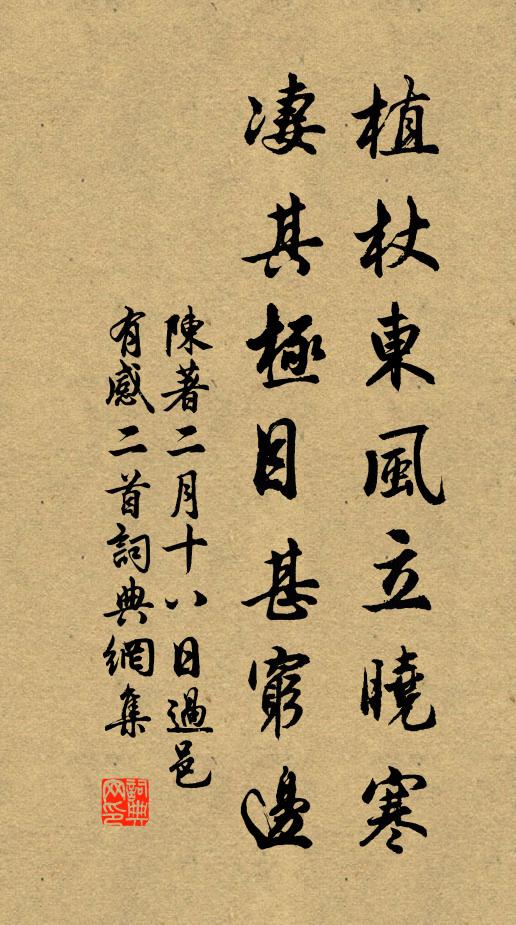 植杖東風立曉寒
凄其極目甚窮邊
陳著二月十八日過邑
有感二首詞典網集
詞典网印